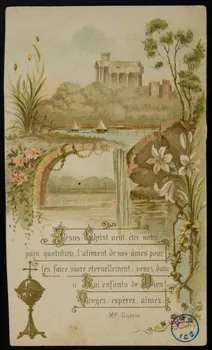 Jésus-Christ veut être notre
pain quotidien, l'aliment de nos âmes pour
les faire vivre éternellement; venez donc
à Lui enfants de Dieu!
Croyez, espérez, aimez.
Mgr